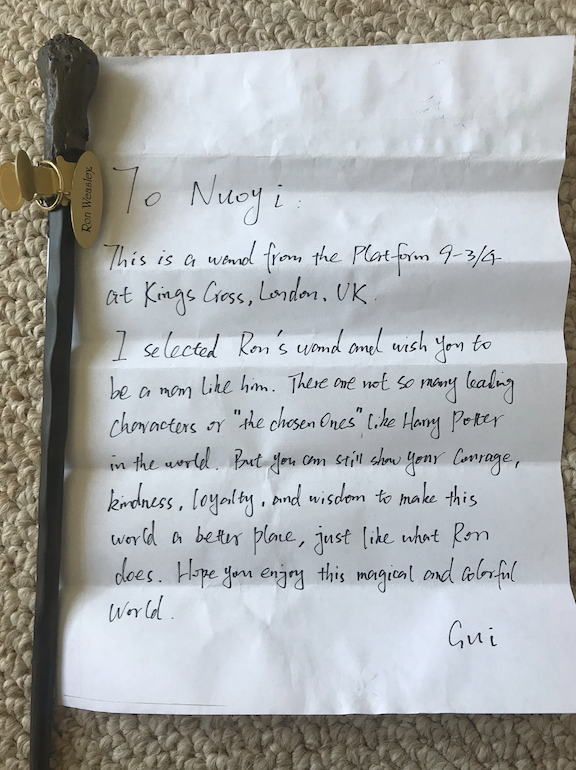 Ron Weasley
To Nuoyi:
This is a wand from the Platform 9-3/4
at Kings Cross, London. UK.
I selected Ron's wand and wish you to
be a man like him. There are not so many leading
characters or "the chosen Ones" like Harry Potter
in the world. But you can still show your Courage,
kindness, loyalty, and wisdom to make this
world a better place, just like what Ron
does. Hope you enjoy this magical and colorful
world.
Gui